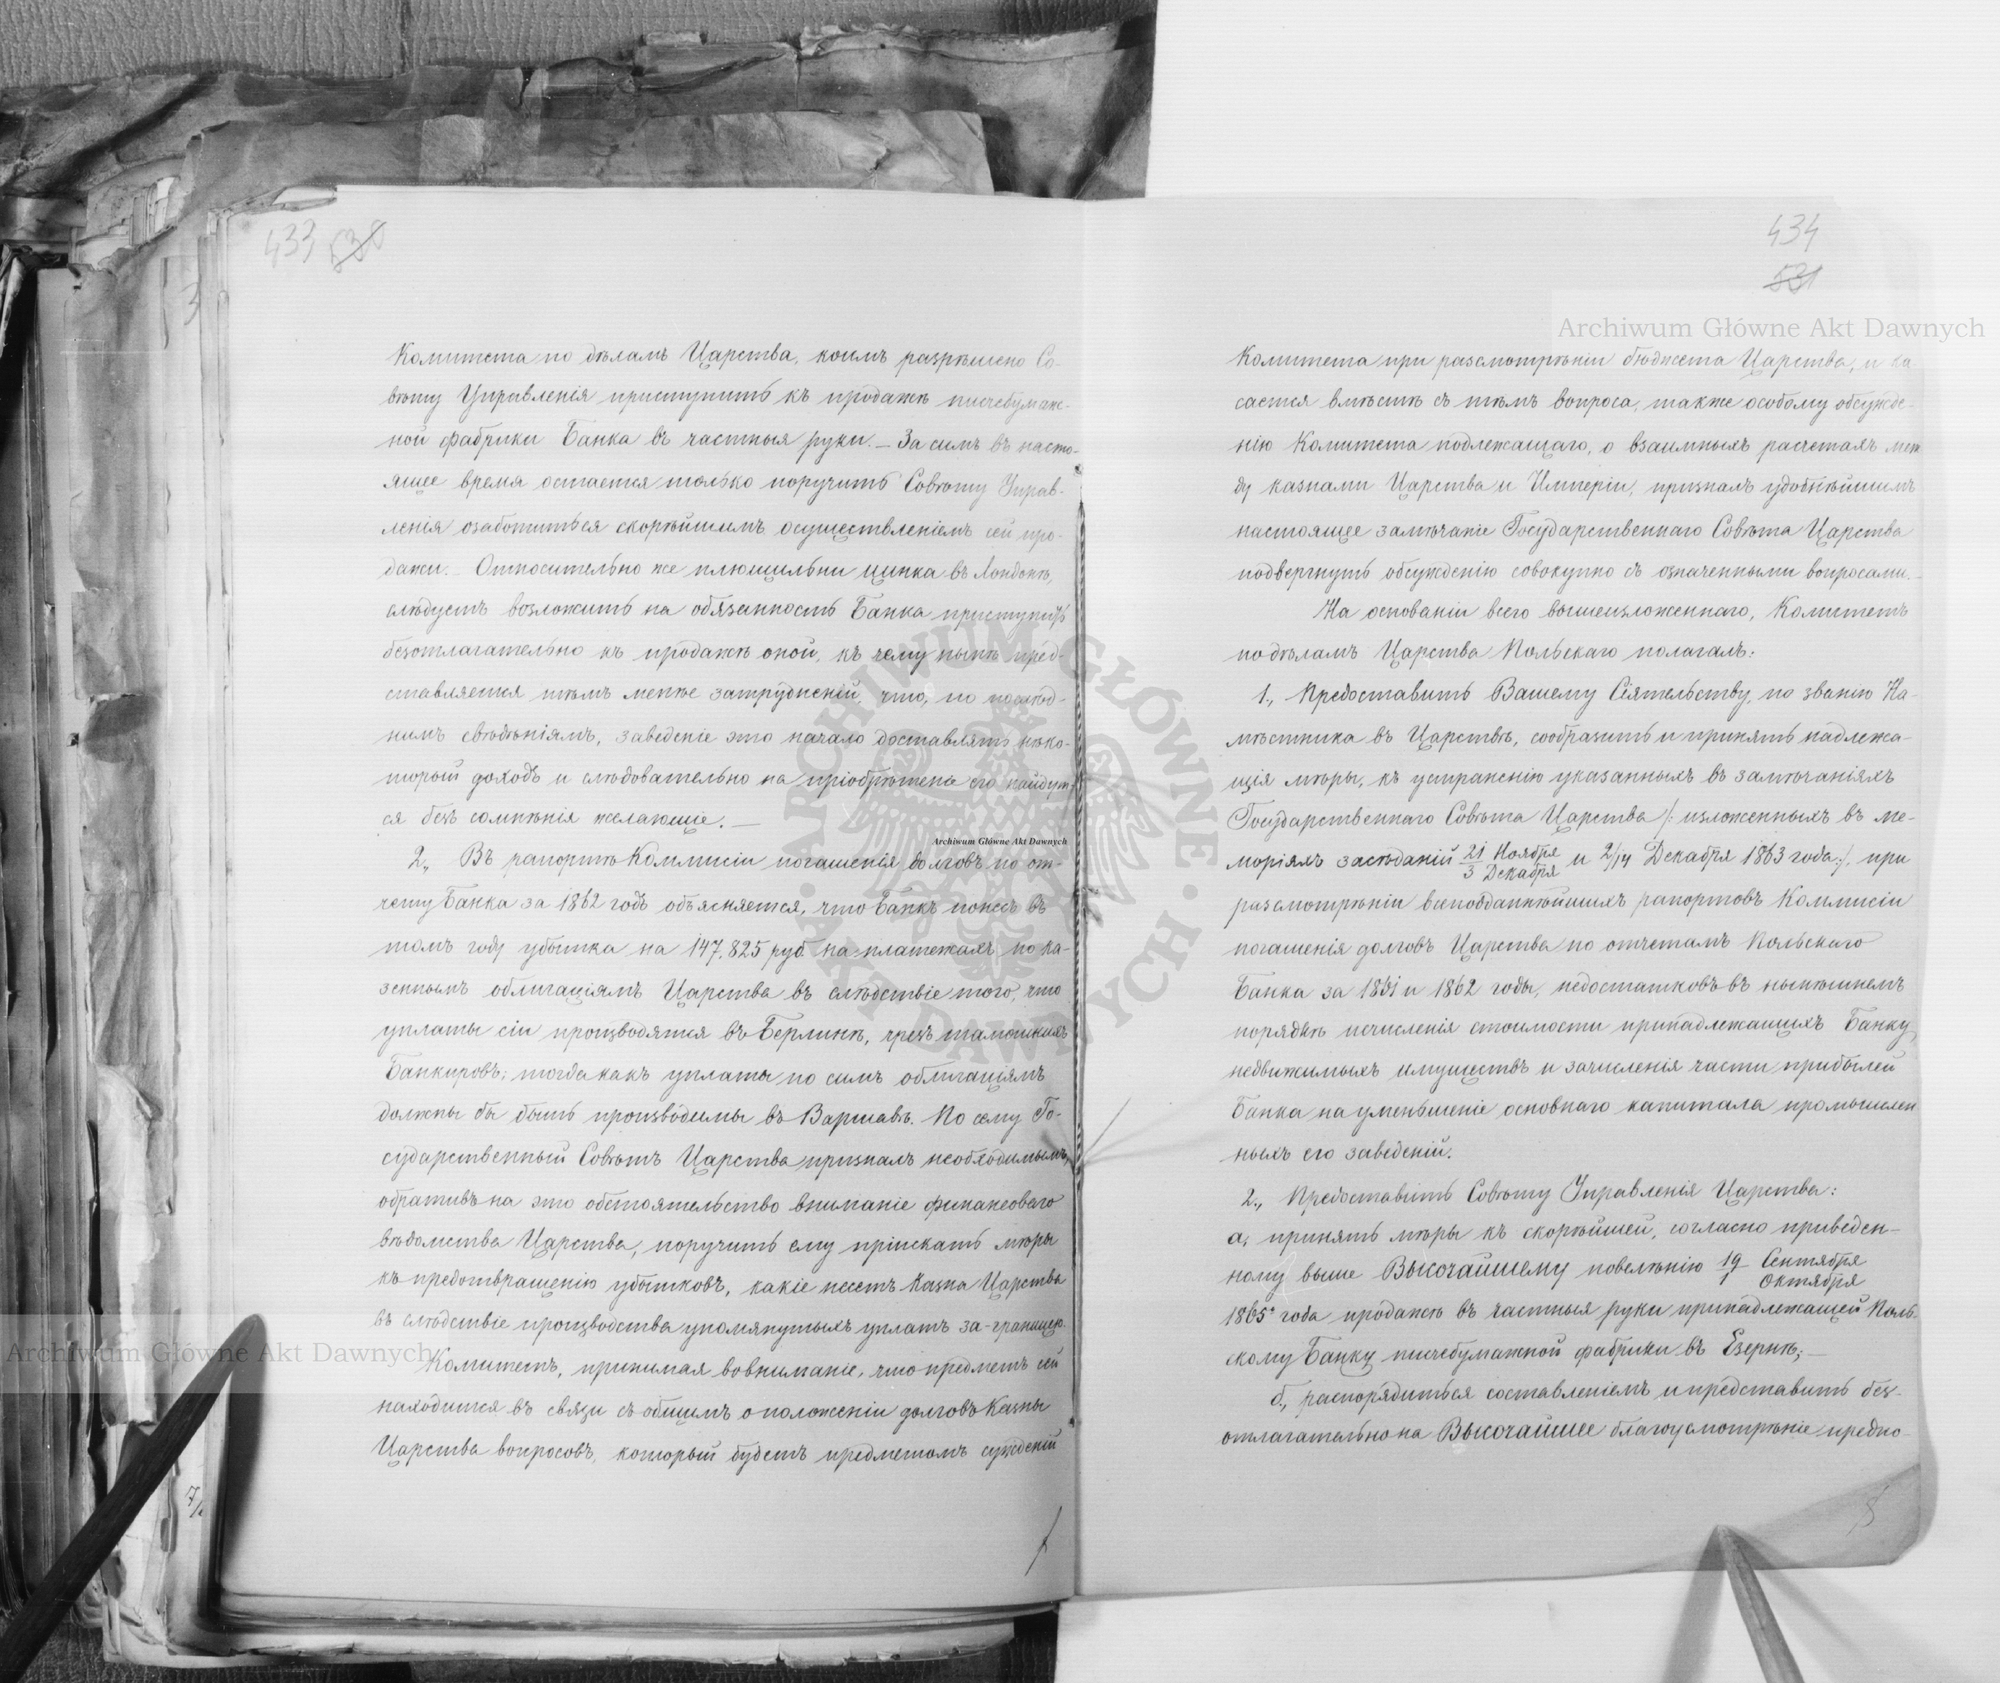 433 530
Комитета по дѣламъ Царства, коимъ разрѣшено Со-
вѣту Управленія приступить къ продажѣ писчебумаж-
ной фабрики Банка въ частныя руки. — За симъ въ насто-
ящее время остается только поручить Совѣту Управ-
ленія озаботиться скорѣйшимъ осуществленіемъ сей про-
дажи. — Относительно же плющильни цинка въ Лондонѣ,
слѣдуетъ возложить на обязанность Банка приступить
безотлагательно къ продажѣ оной, къ чему нынѣ пред-
ставляется тѣмъ менѣе затрудненій, что, по послѣд-
нимъ свѣдѣніямъ, заведеніе это начало доставлять нѣко-
торый доходъ и слѣдовательно на пріобрѣтеніе его найдут-
ся безъ сомнѣнія желающіе. —
2., Въ рапортѣ Коммисіи погашенія долговъ по от-
чету Банка за 1862 годъ объясняется, что Банкъ понесъ въ
томъ году убытка на 147.825 руб. на платежахъ по ка-
зеннымъ облигаціямъ Царства въ слѣдствіе того, что
уплаты сіи производятся въ Берлинѣ, чрезъ тамошнихъ
Банкировъ; тогда какъ уплаты по симъ облигаціямъ
должны бы быть производимы въ Варшавѣ. По сему Го-
сударственный Совѣтъ Царства призналъ необходимымъ,
обративъ на это обстоятельство вниманіе финансоваго
вѣдомства Царства, поручить ему пріискать мѣры
къ предотвращенію убытковъ, какіе несетъ Казна Царства
въ слѣдствіе производства упомянутыхъ уплатъ за-границею.
Комитетъ, принимая во вниманіе, что предметъ сей
находится въ связи съ общимъ о положеніи долговъ Казны
Царства вопросовъ, который будетъ предметомъ сужденій
434
531
Комитета при разсмотрѣніи бюджета Царства, и ка
сается вмѣстѣ съ тѣмъ вопроса, также особому обсужде-
нію Комитета подлежащаго, о взаимныхъ расчетахъ меж
ду казнами Царства и Имперіи, призналъ удобнѣйшимъ
настоящее замѣчаніе Государственнаго Совѣта Царства
подвергнуть обсужденію совокупно съ означенными вопросами. —
На основаніи всего вышеизложеннаго, Комитетъ
по дѣламъ Царства Польскаго полагалъ:
1., Предоставить Вашему Сіятельству, по званію На-
мѣстника въ Царствѣ, сообразить и принять надлежа-
щія мѣры, къ устраненію указанныхъ въ замѣчаніяхъ
Государственнаго Совѣта Царства /: изложенныхъ въ ме-
моріяхъ засѣданій 21 Ноября / 3 Декабря и 2/14 Декабря 1863 года :/, при
разсмотрѣніи всеподданнѣйшихъ рапортовъ Коммисіи
погашенія долговъ Царства по отчетамъ Польскаго
Банка за 1861 и 1862 годы, недостатковъ въ нынѣшнемъ
порядкѣ исчисленія стоимости принадлежащихъ Банку
недвижимыхъ имуществъ и зачисленія части прибылей
Банка на уменьшеніе основнаго капитала промышлен
ныхъ его заведеній.
2., Предоставить Совѣту Управленія Царства:
а, принять мѣры къ скорѣйшей, согласно приведен-
ному выше Высочайшему повелѣнію 19 Сентября / 1 Октября
1865 года продажѣ въ частныя руки принадлежащей Поль-
скому Банку писчебумажной фабрики въ Езернѣ; —
б, распорядиться составленіемъ и представить без-
отлагательно на Высочайшее благоусмотрѣніе предпо-
Archiwum Główne Akt Dawnych
Archiwum Główne Akt Dawnych
Archiwum Główne Akt Dawnych
ARCHIWUM GŁÓWNE AKT DAWNYCH